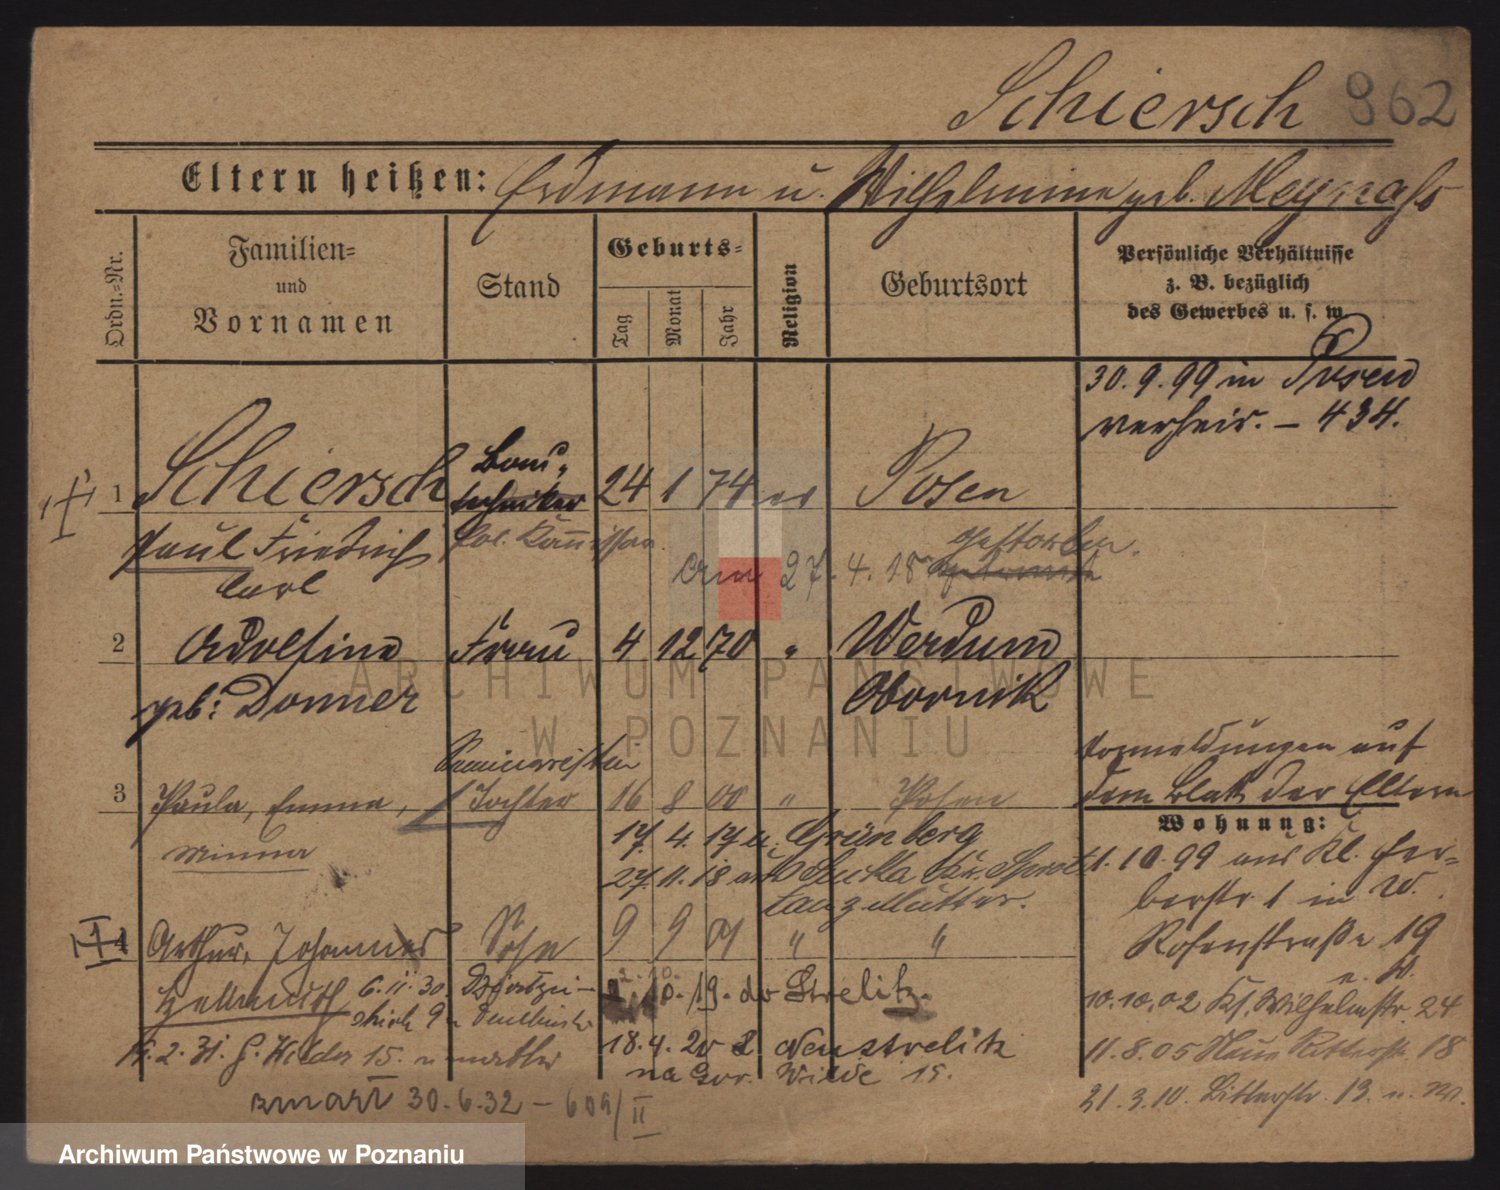 Schiersch 862
Eltern heißen: Erdmann u. Wilhelmine geb. Meynaß
Ordn.-Nr.
Familien-
und
Vornamen
Stand
Geburts-
Tag
Monat
Jahr
Religion
Geburtsort
Persönliche Verhältnisse
z. B. bezüglich
des Gewerbes u. s. w.
30.9.99 in Posen
verheir. – 434.
1 Schiersch Bau-
techniker 24 1 74 ev Posen
Paul Friedrich
Carl
Pol. Kommissar
am 27.4.18 gestorben.
2 Adolfine Frau 4 12 70 " Werdum
geb: Donner Obornik
3 Paula, Emma, Seminaristin
Tochter 16 8 00 " Posen
Minna
17. 4. 19 u. Grünberg
27. 11. 18 aus
Mutter.
Anmeldungen auf
dem Blatt der Eltern
Wohnung:
1.10.99 aus Kl. Ger-
berstr 1 in W.
Rosenstraße 19
4 Arthur, Johannes Sohn 9 9 01 " "
Hellmuth 6.11.30
10. 19. Strelitz.
10.10.02 Wilhelmstr. 24
18.4.20 Neustrelitz
11.8.05 Neue Ritterstr. 18
na Gór. Wilde 15.
zmarł 30.6.32 – 609/II
31.3.10. Ritterstr. 13. u. W.
ARCHIWUM PAŃSTWOWE
W POZNANIU
Archiwum Państwowe w Poznaniu